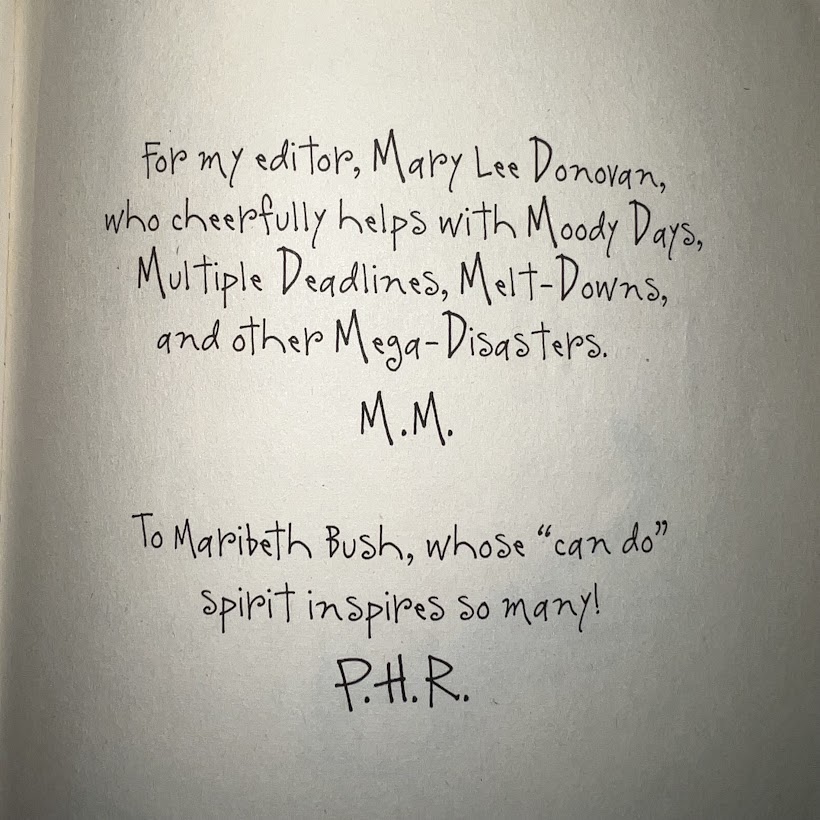 For my editor, Mary Lee Donovan,
who cheerfully helps with Moody Days,
Multiple Deadlines, Melt-Downs,
and other Mega-Disasters.
M.M.
To Maribeth Bush, whose “can do”
spirit inspires so many!
P.H.R.